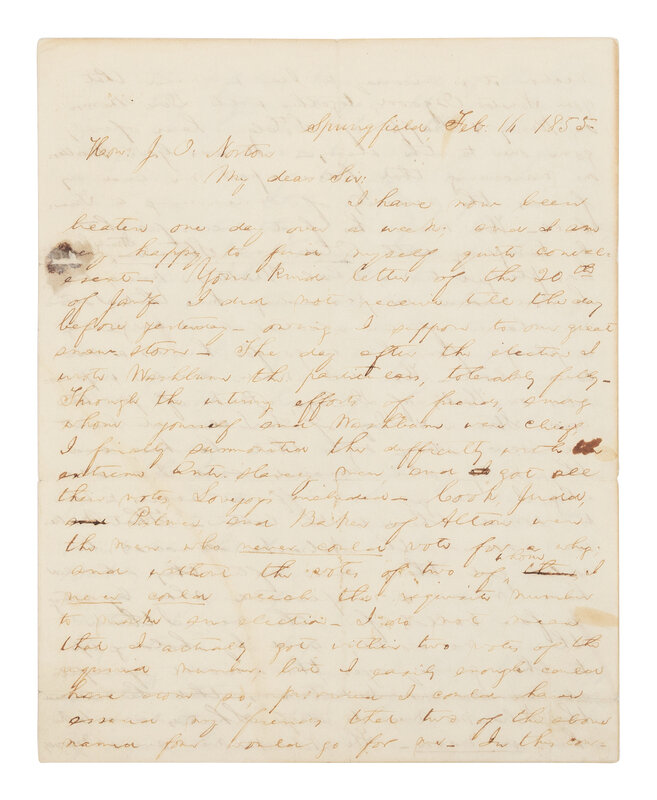 Springfield Feb. 16. 1855
Hon: J. O. Norton
My dear Sir:
I have now been
beaten one day over a week; and I am
very happy to find myself quite conval-
escent— Your kind letter of the 20th
of Jany I did not receive till the day
before yesterday— owing I suppose to our great
snow-storm— The day after the election I
wrote Washburn the particulars, tolerably fully—
Through the untiring efforts of friends, among
whom yourself and Washburn were chief,
I finally surmounted the difficulty with the
extreme Anti-slavery men, and got all
their votes, Lovejoy's included— Cook, Judd,
and Palmer and Baker of Alton were
the men who never could vote for a whig;
and without the votes of two of whom I
never could reach the requisite number
to make an election— I do not mean
that I actually got within two votes of the
required number; but I easily enough could
have done so, provided I could have
assured my friends that two of the above
named four would go for me— In this con-